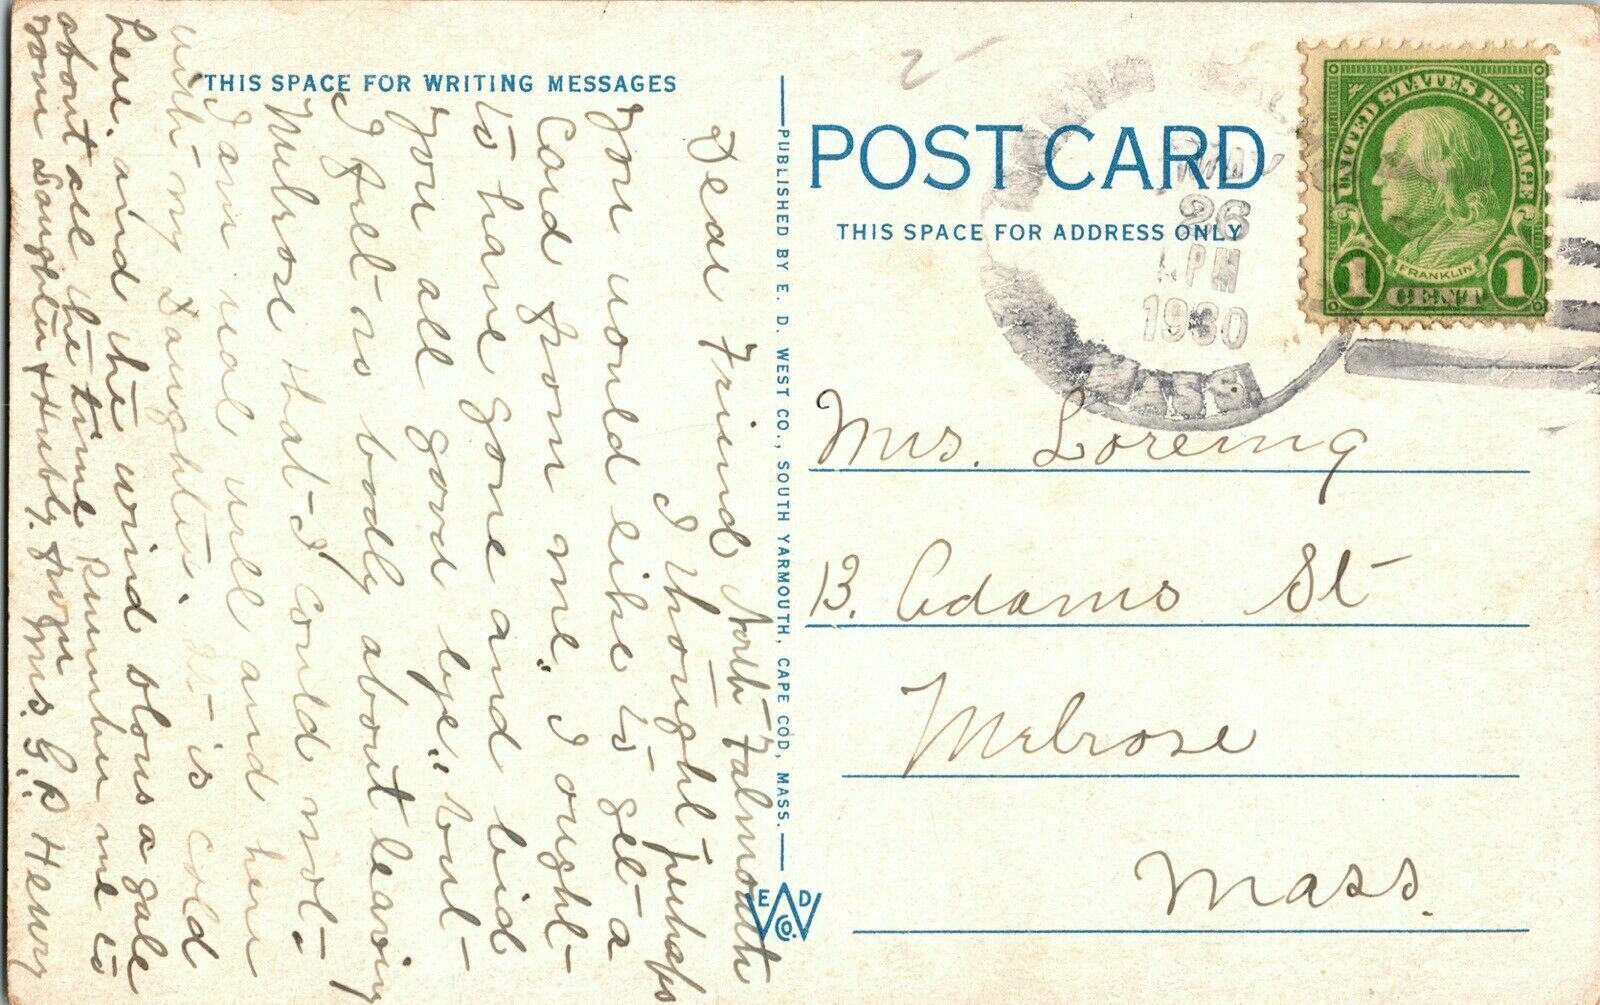 THIS SPACE FOR WRITING MESSAGES
North Falmouth
Dear Friend
I thought perhaps
you would like to get a
Card from me. I ought
to have gone and bid
you all good bye" but
I felt so badly about leaving
Melrose that I could not.
I am real well and
with my Daughter. it is cold
here. and the wind blows a gale
about all the time Remember me to
your Daughter & Hubby. from
Mrs. G. P. Henry
PUBLISHED BY E. D. WEST CO., SOUTH YARMOUTH, CAPE COD, MASS.
E D
W
CO.
POST CARD
THIS SPACE FOR ADDRESS ONLY
MAY
26
PM
1930
MASS.
UNITED STATES POSTAGE
FRANKLIN
1 CENT 1
Mrs. Loreing
13. Adams St
Melrose
Mass.